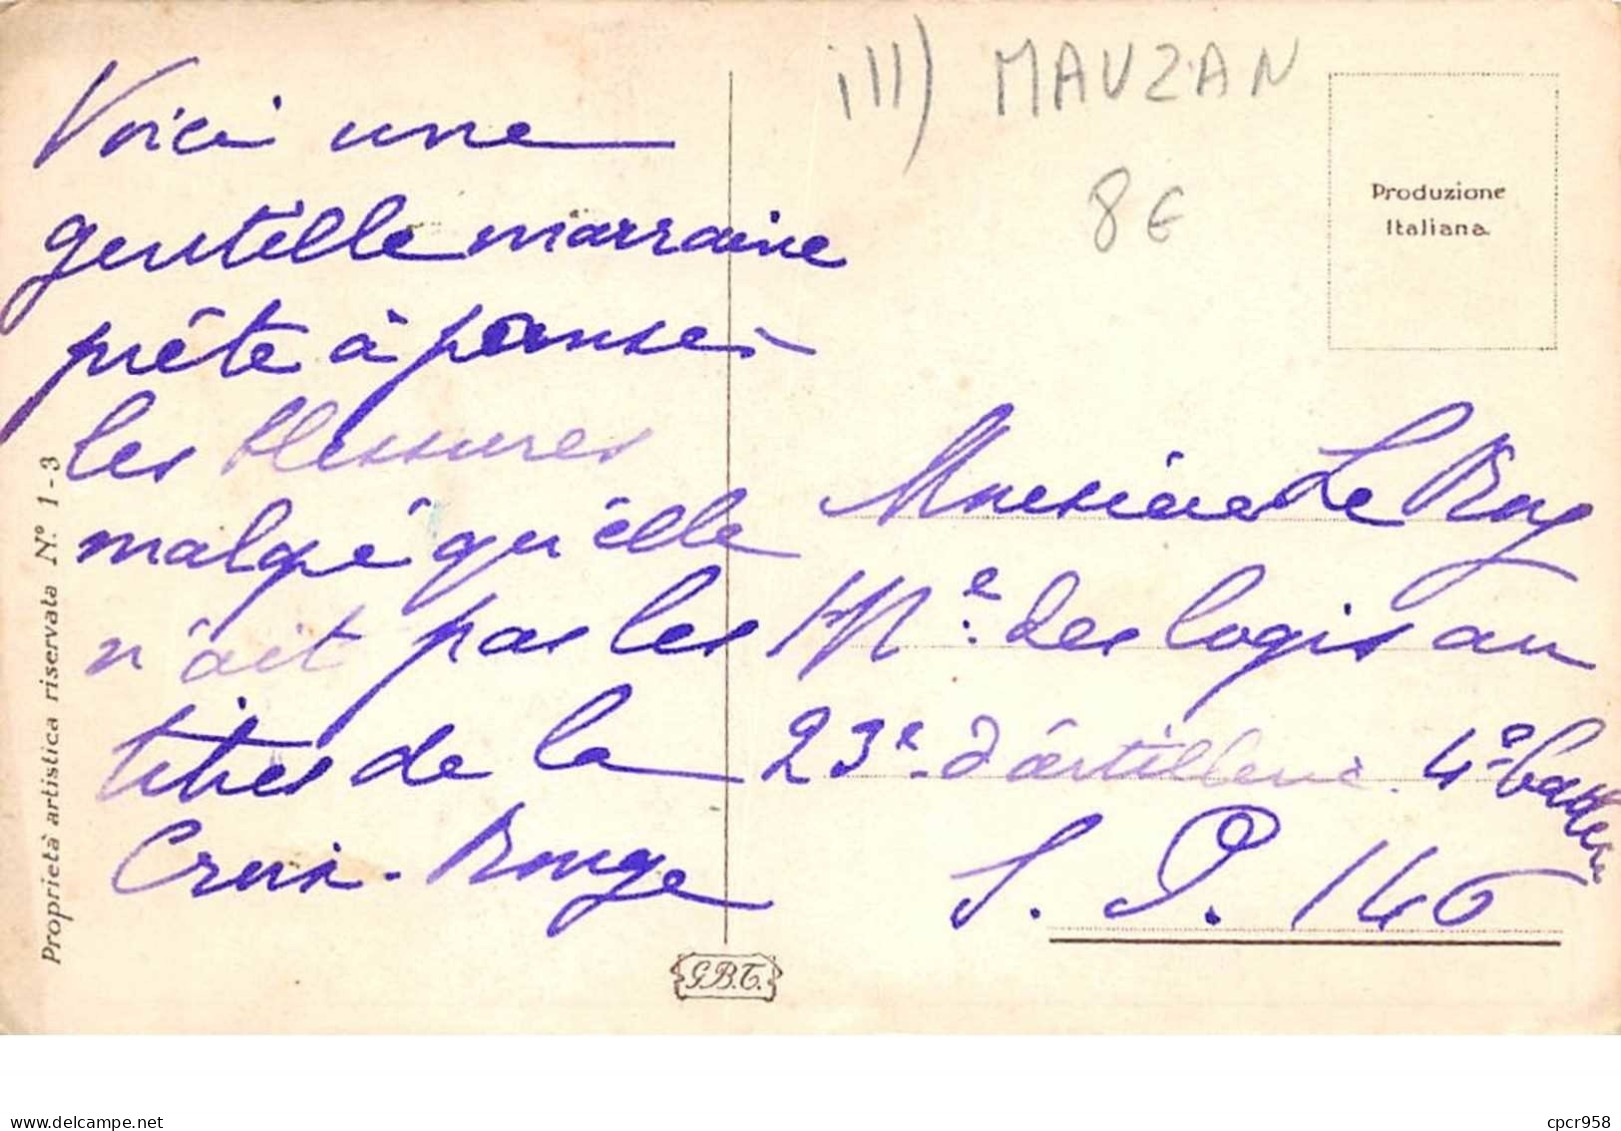 Voici une
gentille marraine
prête à panser
les blessures
malgré qu'elle
n'ait pas les
titres de la
Croix-Rouge
ill) MAUZAN
8€
Produzione
Italiana.
Monsieur Le Roy
Mˡ.ᵉ des logis au
23ᵉ d'artillerie 4ᵉ batterie
S. P. 146
Proprietà artistica riservata N.º 1-3
G.B.T.
www.delcampe.net
cpcr958